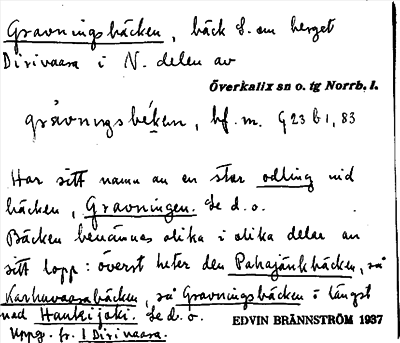 Gravningsbäcken, bäck S. om berget
Dirivaara i N. delen av
Överkalix sn o. tg Norrb. l.
gråvnıngsbékən, bf. m. § 23 b 1, 83
Har sitt namn av en stor odling vid
bäcken, Gravningen. Se d. o.
Bäcken benämnes olika i olika delar av
sitt lopp: överst heter den Pahajänkbäcken, så
Karhuvaarabäcken, så Gravningsbäcken o. längst
ned Haukijoki. Se d. o.
EDVIN BRÄNNSTRÖM 1937
Uppg. fr. 1 Dirivaara.